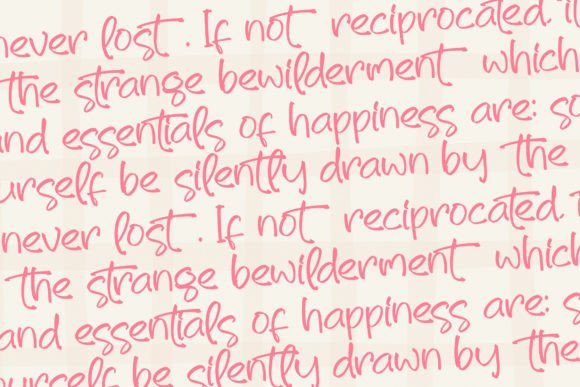 never lost. If not reciprocated,
the strange bewilderment which
and essentials of happiness are:
urself be silently drawn by the
never lost. If not reciprocated,
the strange bewilderment which
and essentials of happiness are:
ourself be silently drawn by the